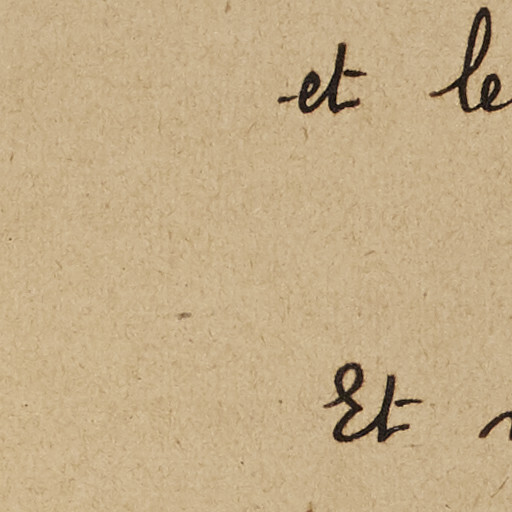 et le
Et